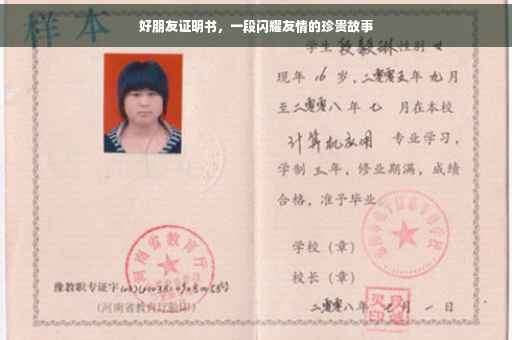 好朋友证明书，一段闪耀友情的珍贵故事
样本
学生 段毅琳 性别 女
现年 16 岁，二零零五年 九 月
至二零零八年 七 月在本校
计算机应用 专业学习，
学制 三 年，修业期满，成绩
合格，准予毕业。
学校（章）
校长（章）
二零零八年 月 一 日
河南省教育厅
豫教职专证字
（河南省教育厅验印）